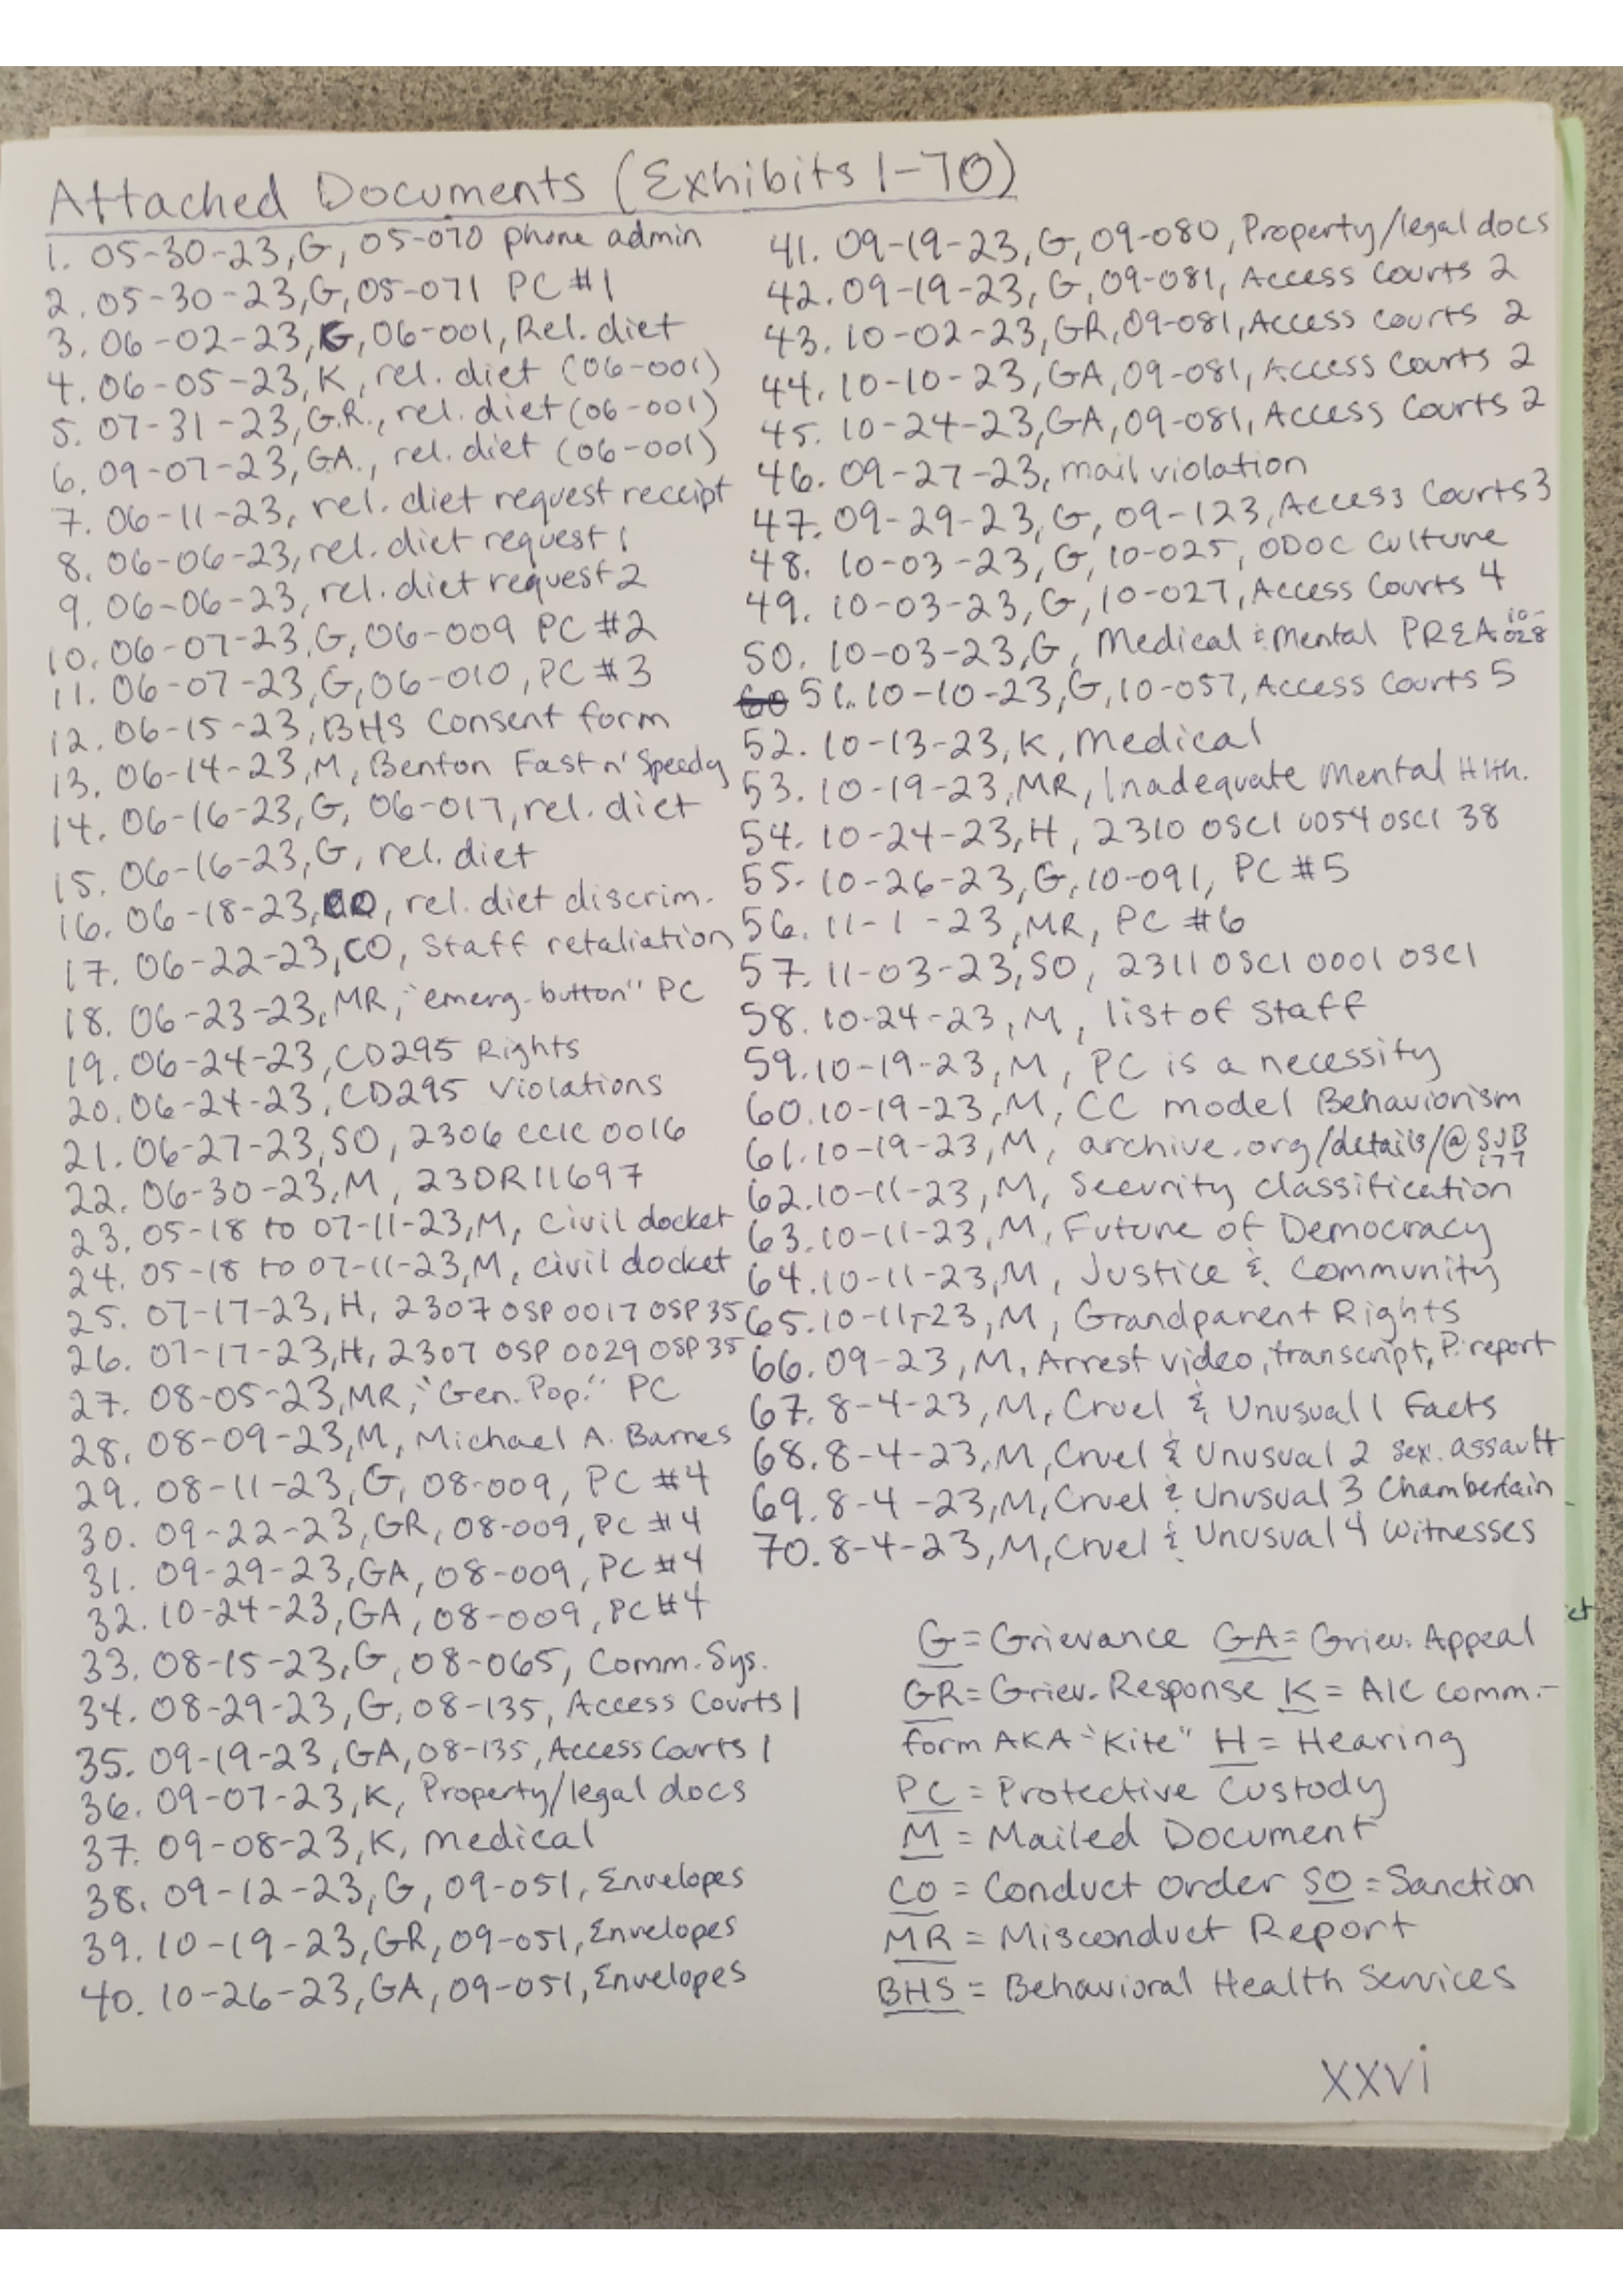 Attached Documents (Exhibits 1-70)
1. 05-30-23, G, 05-070 phone admin
2. 05-30-23, G, 05-071 PC #1
3. 06-02-23, G, 06-001, Rel. diet
4. 06-05-23, K, rel. diet (06-001)
5. 07-31-23, G.R., rel. diet (06-001)
6. 09-07-23, GA., rel. diet (06-001)
7. 06-11-23, rel. diet request receipt
8. 06-06-23, rel. diet request 1
9. 06-06-23, rel. diet request 2
10. 06-07-23, G, 06-009 PC #2
11. 06-07-23, G, 06-010, PC #3
12. 06-15-23, BHS Consent form
13. 06-14-23, M, Benton Fast n' Speedy
14. 06-16-23, G, 06-017, rel. diet
15. 06-16-23, G, rel. diet
16. 06-18-23, CO, rel. diet discrim.
17. 06-22-23, CO, Staff retaliation
18. 06-23-23, MR, "emerg. button" PC
19. 06-24-23, CD295 Rights
20. 06-24-23, CD295 Violations
21. 06-27-23, SO, 2306 CCIC 0016
22. 06-30-23, M, 23DR11697
23. 05-18 to 07-11-23, M, Civil docket
24. 05-18 to 07-11-23, M, civil docket
25. 07-17-23, H, 2307 OSP 0017 OSP 35
26. 07-17-23, H, 2307 OSP 0029 OSP 35
27. 08-05-23, MR, "Gen. Pop." PC
28. 08-09-23, M, Michael A. Barnes
29. 08-11-23, G, 08-009, PC #4
30. 09-22-23, GR, 08-009, PC #4
31. 09-29-23, GA, 08-009, PC #4
32. 10-24-23, GA, 08-009, PC #4
33. 08-15-23, G, 08-065, Comm. Sys.
34. 08-29-23, G, 08-135, Access Courts 1
35. 09-19-23, GA, 08-135, Access Courts 1
36. 09-07-23, K, Property/legal docs
37. 09-08-23, K, medical
38. 09-12-23, G, 09-051, Envelopes
39. 10-19-23, GR, 09-051, Envelopes
40. 10-26-23, GA, 09-051, Envelopes
41. 09-19-23, G, 09-080, Property/legal docs
42. 09-19-23, G, 09-081, Access Courts 2
43. 10-02-23, GR, 09-081, Access Courts 2
44. 10-10-23, GA, 09-081, Access Courts 2
45. 10-24-23, GA, 09-081, Access Courts 2
46. 09-27-23, mail violation
47. 09-29-23, G, 09-123, Access Courts 3
48. 10-03-23, G, 10-025, ODOC Culture
49. 10-03-23, G, 10-027, Access Courts 4
50. 10-03-23, G, Medical & Mental PREA 10-028
60 51. 10-10-23, G, 10-057, Access Courts 5
52. 10-13-23, K, Medical
53. 10-19-23, MR, Inadequate Mental Hlth.
54. 10-24-23, H, 2310 OSCI 0054 OSCI 38
55. 10-26-23, G, 10-091, PC #5
56. 11-1-23, MR, PC #6
57. 11-03-23, SO, 2311 OSCI 0001 OSCI
58. 10-24-23, M, list of Staff
59. 10-19-23, M, PC is a necessity
60. 10-19-23, M, CC model Behaviorism
61. 10-19-23, M, archive.org/details/@SJB177
62. 10-11-23, M, Security classification
63. 10-11-23, M, Future of Democracy
64. 10-11-23, M, Justice & Community
65. 10-11-23, M, Grandparent Rights
66. 09-23, M, Arrest video, transcript, P. report
67. 8-4-23, M, Cruel & Unusual 1 Facts
68. 8-4-23, M, Cruel & Unusual 2 sex. assault
69. 8-4-23, M, Cruel & Unusual 3 Chamberlain
70. 8-4-23, M, Cruel & Unusual 4 Witnesses
G = Grievance GA = Griev. Appeal
GR = Griev. Response K = AIC comm.-
form AKA "Kite" H = Hearing
PC = Protective Custody
M = Mailed Document
CO = Conduct Order SO = Sanction
MR = Misconduct Report
BHS = Behavioral Health Services
xxvi